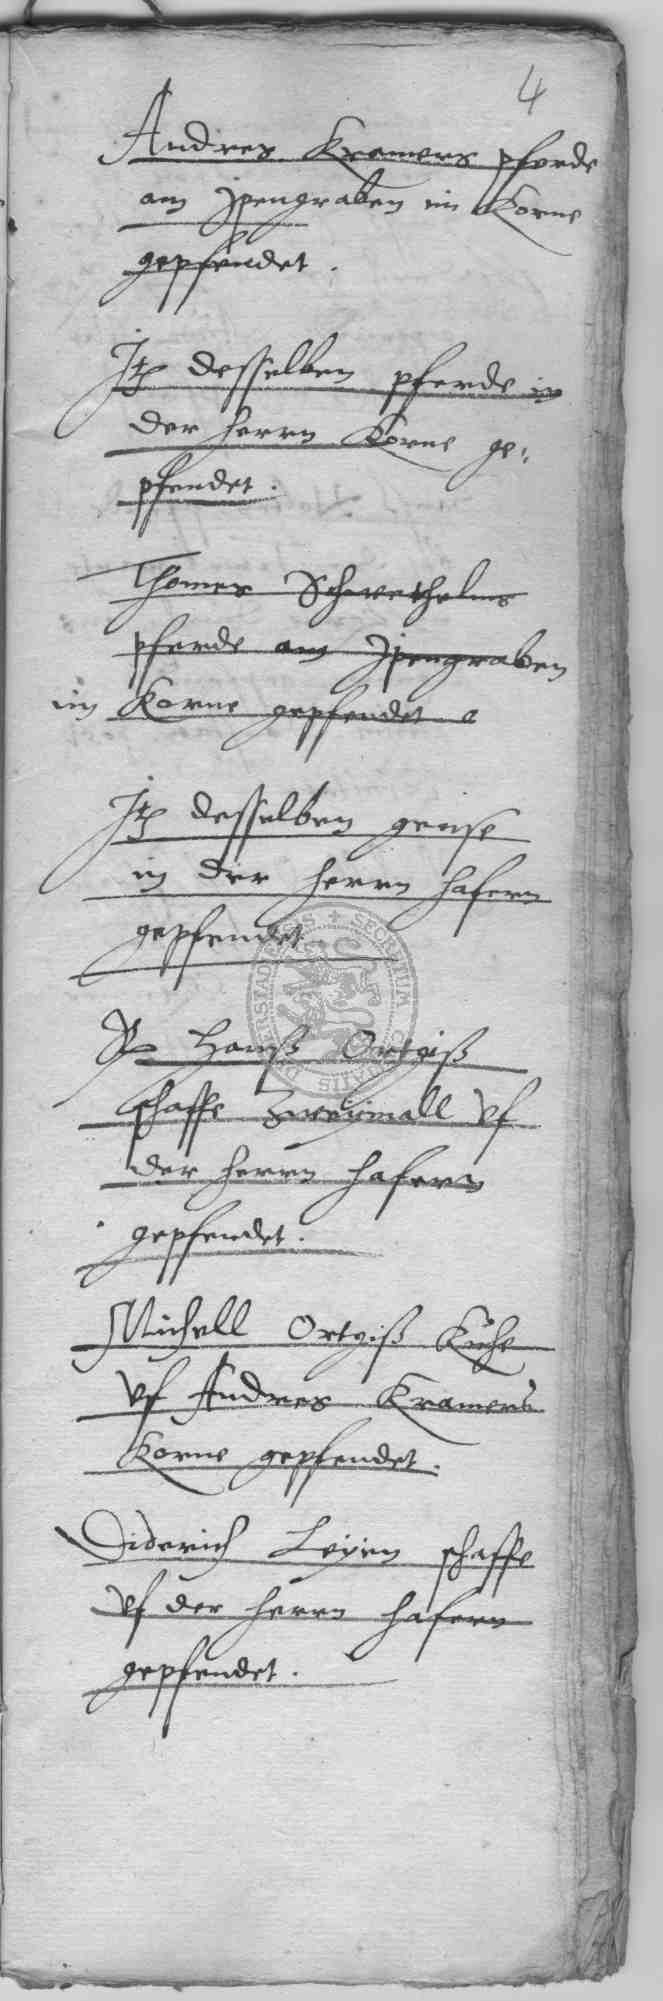 4
Andres Kramers pferde
am Jpengraben im Korne
gepfendet.
Jt desselben pferde in
der herrn Korne ge:
pfendet.
Thomes Schwethelms
pferde am Jpengraben
im Korne gepfendet
Jt desselben gense
in der herrn hafern
gepfendet
Hanß Ortgiß
schaffe zweymall vf
der herrn hafern
gepfendet.
Michell Ortgiß Kuhe
vf Andres Kramers
Korne gepfendet.
Diderich Leyen schaffe
vf der herrn hafern
gepfendet.
SECRETUM CIVITATIS